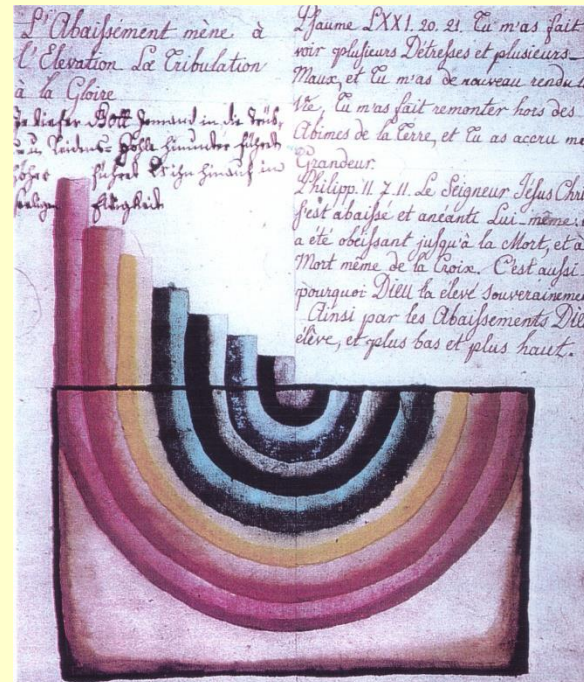 L'Abaissement mène à
l'Elevation La Tribulation
à la Gloire
Je tiefer Gott Jemand in die
Leidens Hölle hinunder führet
höher führet Er ihn hinauf in
Ewigkeit
Psaume LXXI. 20. 21. Tu m'as fait
voir plusieurs Détresses et plusieurs
Maux, et Tu m'as de nouveau rendu
Vie, Tu m'as fait remonter hors des
Abimes de la Terre, et Tu as accru m
Grandeur.
Philipp. II 7. 11. Le Seigneur Jésus Chri
s'est abaissé et anéanti Lui-même:
a été obéissant jusqu'à la Mort, et à
Mort même de la Croix. C'est aussi
pourquoi Dieu l'a elevé souveraineme
Ainsi par les Abaissements Die
élève, et plus bas et plus haut.